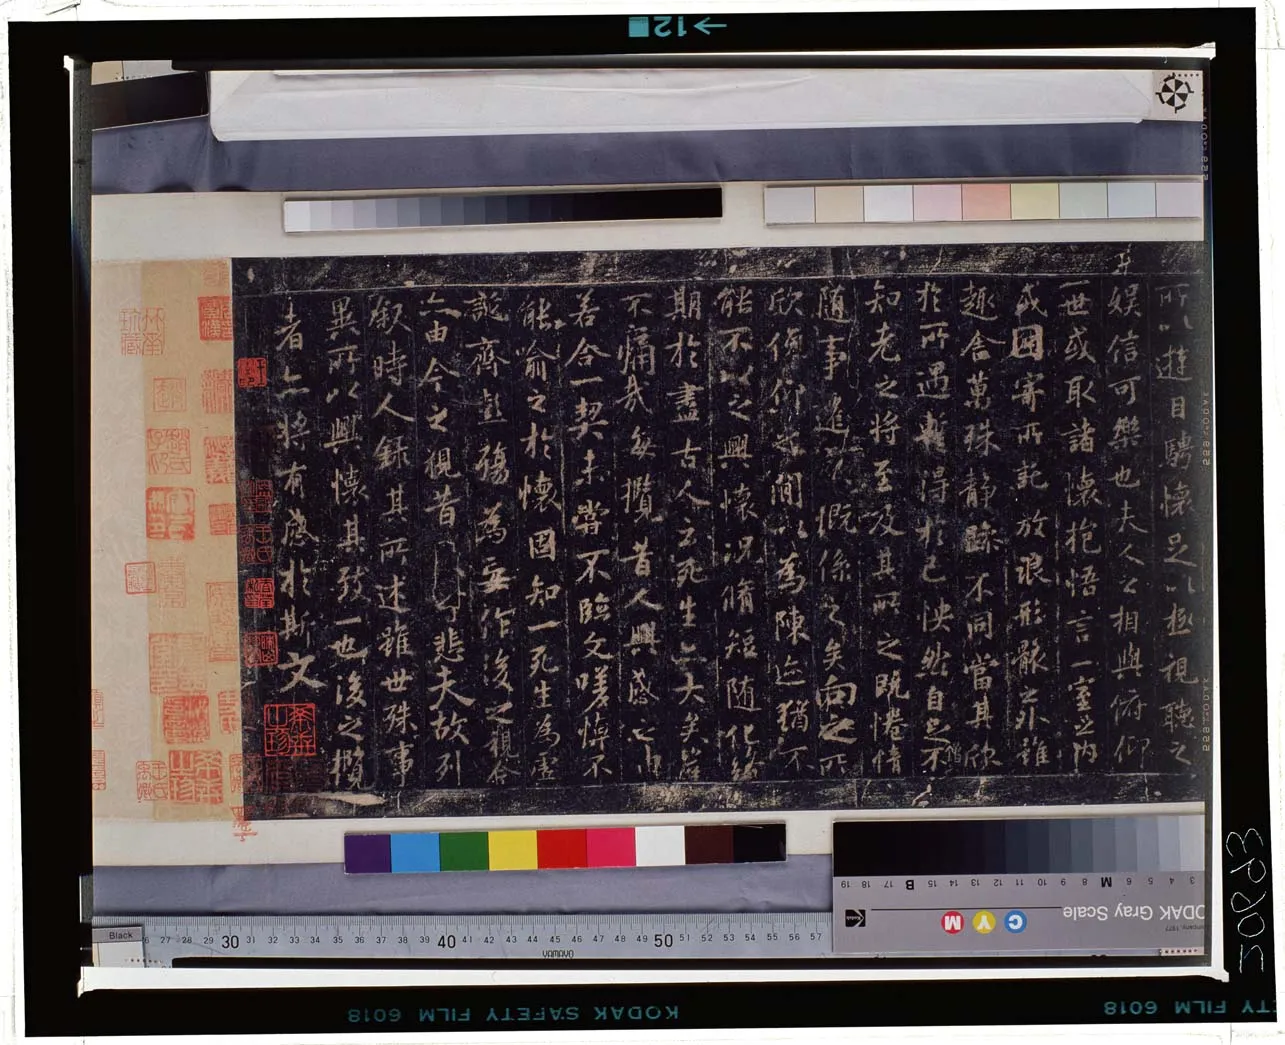 所以遊目騁懷足以極視聽之
娛信可樂也夫人之相與俯仰
一世或取諸懷抱悟言一室之內
或因寄所託放浪形骸之外雖
趣舍萬殊靜躁不同當其欣
於所遇蹔得於己怏然自足不
知老之將至及其所之既惓情
隨事遷感慨係之矣向之所
欣俛仰之閒以為陳迹猶不
能不以之興懷況脩短隨化終
期於盡古人云死生亦大矣豈
不痛哉每攬昔人興感之由
若合一契未嘗不臨文嗟悼不
能喻之於懷固知一死生為虛
誕齊彭殤為妄作後之視今
亦由今之視昔 悲夫故列
敘時人錄其所述雖世殊事
異所以興懷其致一也後之攬
者亦將有感於斯文
12
KODAK Gray Scale
C Y M
3 4 5 6 M 8 9 10 11 12 13 14 15 B 17 18 19
Kodak
Black
27 28 29 30 31 32 33 34 35 36 37 38 39 40 41 42 43 44 45 46 47 48 49 50 51 52 53 54 55 56 57
KODAK SAFETY FILM 6018
TY FILM 6018